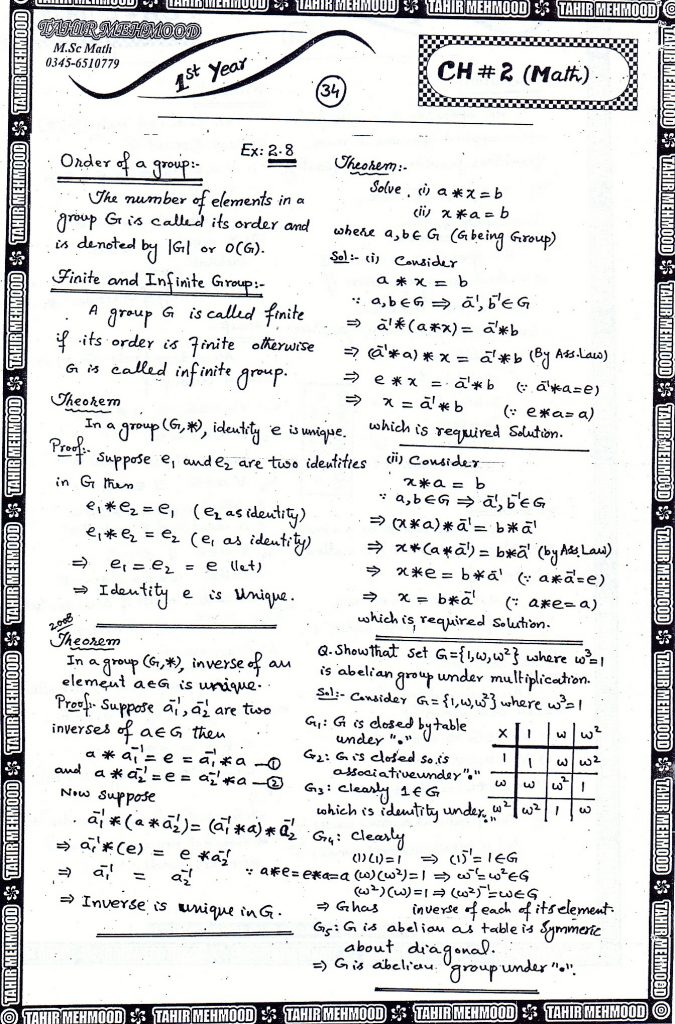 TAHIR MEHMOOD
M.Sc Math
0345-6510779
1st Year
34
CH # 2 (Math.)
Ex: 2.8
Order of a group:-
The number of elements in a
group G is called its order and
is denoted by |G| or O(G).
Finite and Infinite Group:-
A group G is called finite
if its order is finite otherwise
G is called infinite group.
Theorem
In a group (G,*), identity e is unique.
Proof:- Suppose e₁ and e₂ are two identities
in G then
e₁*e₂ = e₁ (e₂ as identity)
e₁*e₂ = e₂ (e₁ as identity)
⇒ e₁ = e₂ = e (let)
⇒ Identity e is Unique.
2008
Theorem
In a group (G,*), inverse of an
element a∈G is unique.
Proof:- Suppose a₁⁻¹, a₂⁻¹ are two
inverses of a∈G then
a * a₁⁻¹ = e = a₁⁻¹ * a —①
and a * a₂⁻¹ = e = a₂⁻¹ * a —②
Now suppose
a₁⁻¹ * (a * a₂⁻¹) = (a₁⁻¹ * a) * a₂⁻¹
⇒ a₁⁻¹ * (e) = e * a₂⁻¹
⇒ a₁⁻¹ = a₂⁻¹ ∵ a*e=e*a=a
⇒ Inverse is unique in G.
Theorem:-
Solve. (i) a * x = b
(ii) x * a = b
where a,b∈G (G being Group)
Sol:- (i) Consider
a * x = b
∵ a,b∈G ⇒ a⁻¹, b⁻¹∈G
⇒ a⁻¹*(a*x) = a⁻¹*b
⇒ (a⁻¹*a) * x = a⁻¹*b (By Ass. Law)
⇒ e * x = a⁻¹*b (∵ a⁻¹*a=e)
⇒ x = a⁻¹*b (∵ e*a=a)
which is required Solution.
(ii) Consider
x*a = b
∵ a,b∈G ⇒ a⁻¹, b⁻¹∈G
⇒ (x*a)*a⁻¹ = b*a⁻¹
⇒ x*(a*a⁻¹) = b*a⁻¹ (by Ass. Law)
⇒ x*e = b*a⁻¹ (∵ a*a⁻¹=e)
⇒ x = b*a⁻¹ (∵ a*e=a)
which is required Solution.
Q. Show that set G={1,ω,ω²} where ω³=1
is abelian group under multiplication.
Sol:- Consider G = {1,ω,ω²} where ω³=1
G₁: G is closed by table
under "•"
G₂: G is closed so is
associative under "•"
G₃: clearly 1∈G
which is identity under "•"
X 1 ω ω²
1 1 ω ω²
ω ω ω² 1
ω² ω² 1 ω
G₄: Clearly
(1)(1)=1 ⇒ (1)⁻¹=1∈G
(ω)(ω²)=1 ⇒ ω⁻¹=ω²∈G
(ω²)(ω)=1 ⇒ (ω²)⁻¹=ω∈G
⇒ G has inverse of each of its element.
G₅: G is abelian as table is Symmeric
about diagonal.
⇒ G is abelian group under "•".